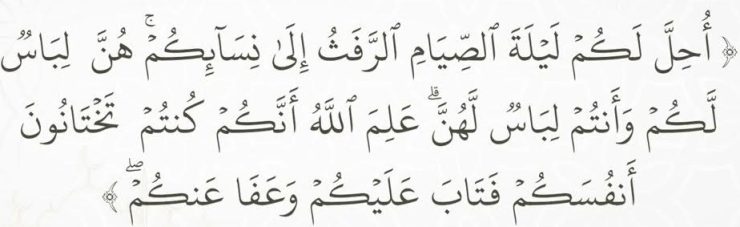 ﴿ أُحِلَّ لَكُمۡ لَيۡلَةَ ٱلصِّيَامِ ٱلرَّفَثُ إِلَىٰ نِسَآئِكُمۡۚ هُنَّ لِبَاسٌ
لَّكُمۡ وَأَنتُمۡ لِبَاسٌ لَّهُنَّۗ عَلِمَ ٱللَّهُ أَنَّكُمۡ كُنتُمۡ تَخۡتَانُونَ
أَنفُسَكُمۡ فَتَابَ عَلَيۡكُمۡ وَعَفَا عَنكُمۡۖ ﴾